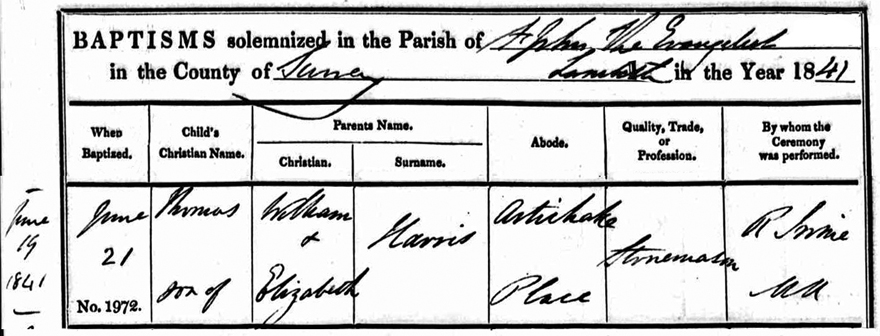 BAPTISMS solemnized in the Parish of St John the Evangelist
in the County of Surrey Lambeth in the Year 1841
When Baptized.
Child's Christian Name.
Parents Name.
Christian.
Surname.
Abode.
Quality, Trade, or Profession.
By whom the Ceremony was performed.
June
19
1841
June
21
No. 1972.
Thomas
son of
William
&
Elizabeth
Harris
Artichoke
Place
Stonemason
R Irvine